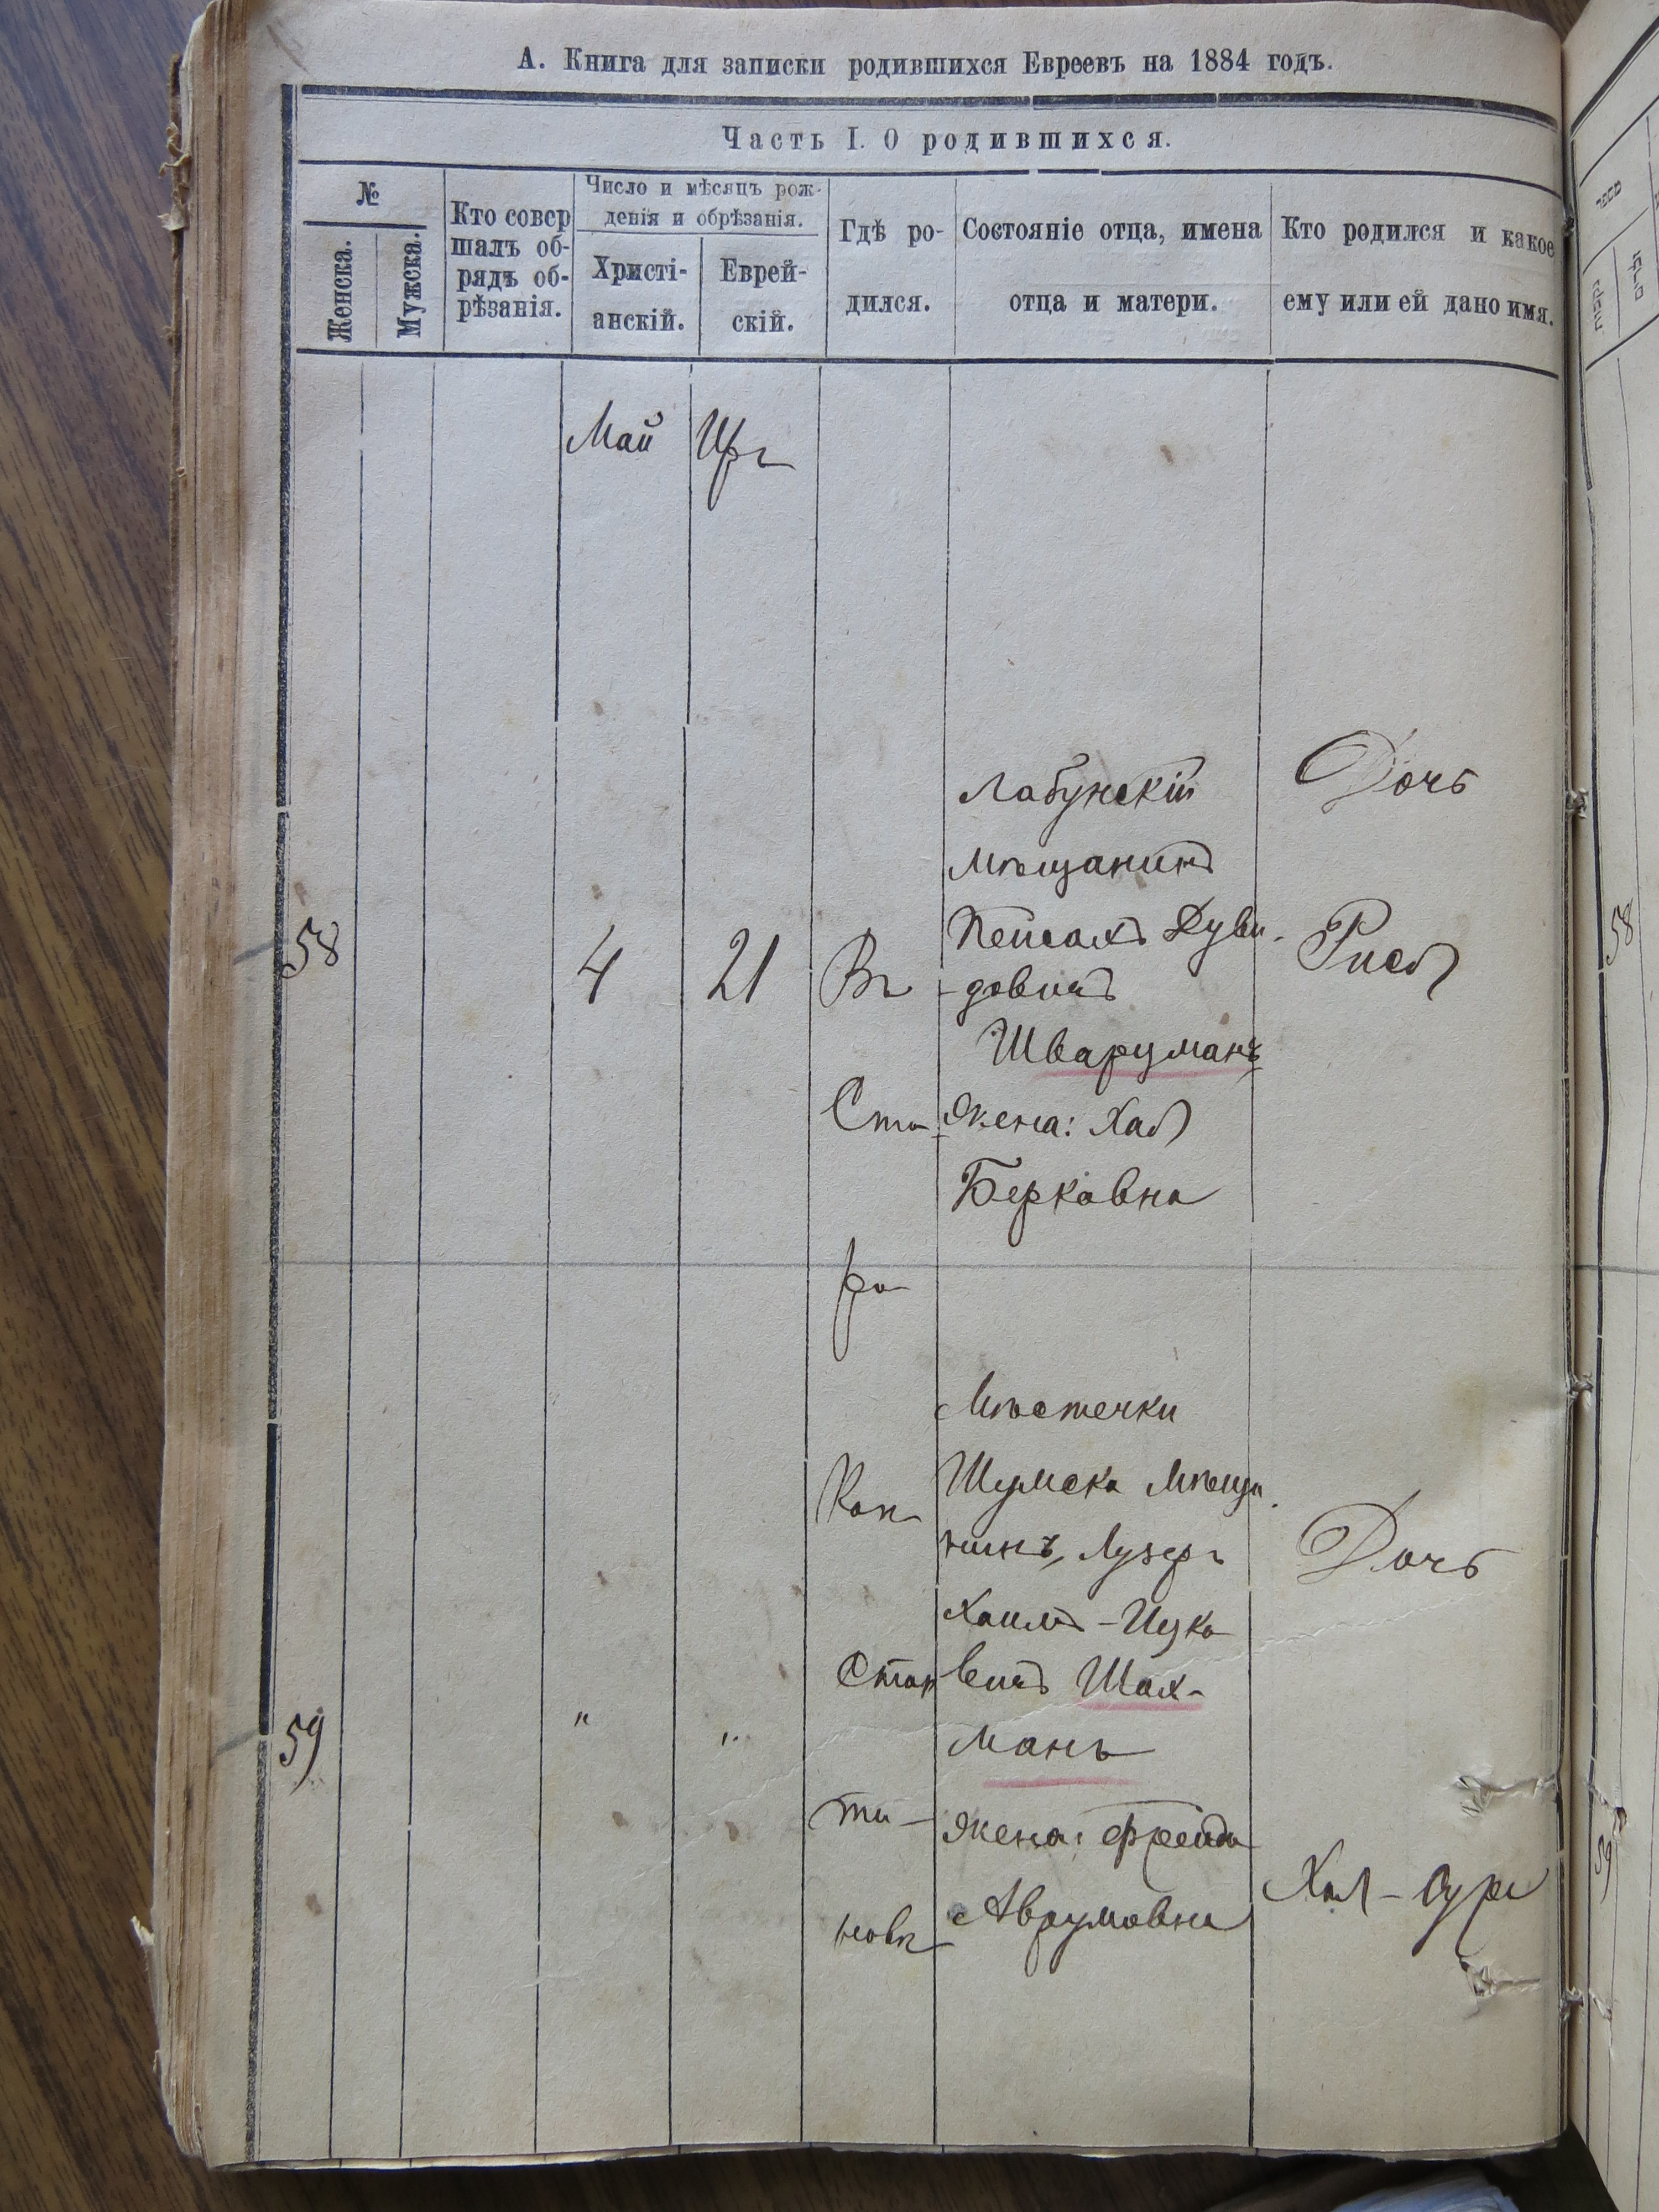 А. Книга для записки родившихся Евреевъ на 1884 годъ.
Часть I. О родившихся.
№
Женска.
Мужска.
Кто совер
шалъ об-
рядъ об-
рѣзанія.
Число и мѣсяцъ рож-
денія и обрѣзанія.
Христі-
анскій.
Еврей-
скій.
Гдѣ ро-
дился.
Состояніе отца, имена
отца и матери.
Кто родился и какое
ему или ей дано имя.
Май
58
4
21
Въ
Ста
ро
Кон
Стан
ти-
новѣ
Лабунскій
мѣщанинъ
Пейсахъ Дуви-
довичъ
Шварцманъ
жена: Хая
Берковна
Дочь
Рися
59
"
"
Мѣстечки
Шумска мѣща-
нинъ, Лузеръ
Хаимъ-Ицко
вичъ Шах-
манъ
жена: Фрейда
Аврумовна
Дочь
Хая-Сура
58
59